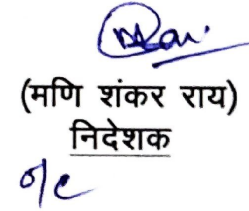 (मणि शंकर राय)
निदेशक
o/c